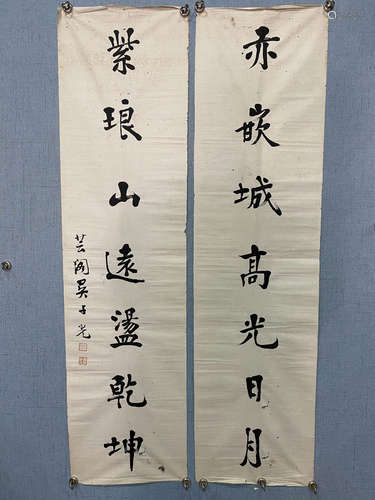 赤嵌城高光日月
紫琅山遠盪乾坤
芸閣吳子光